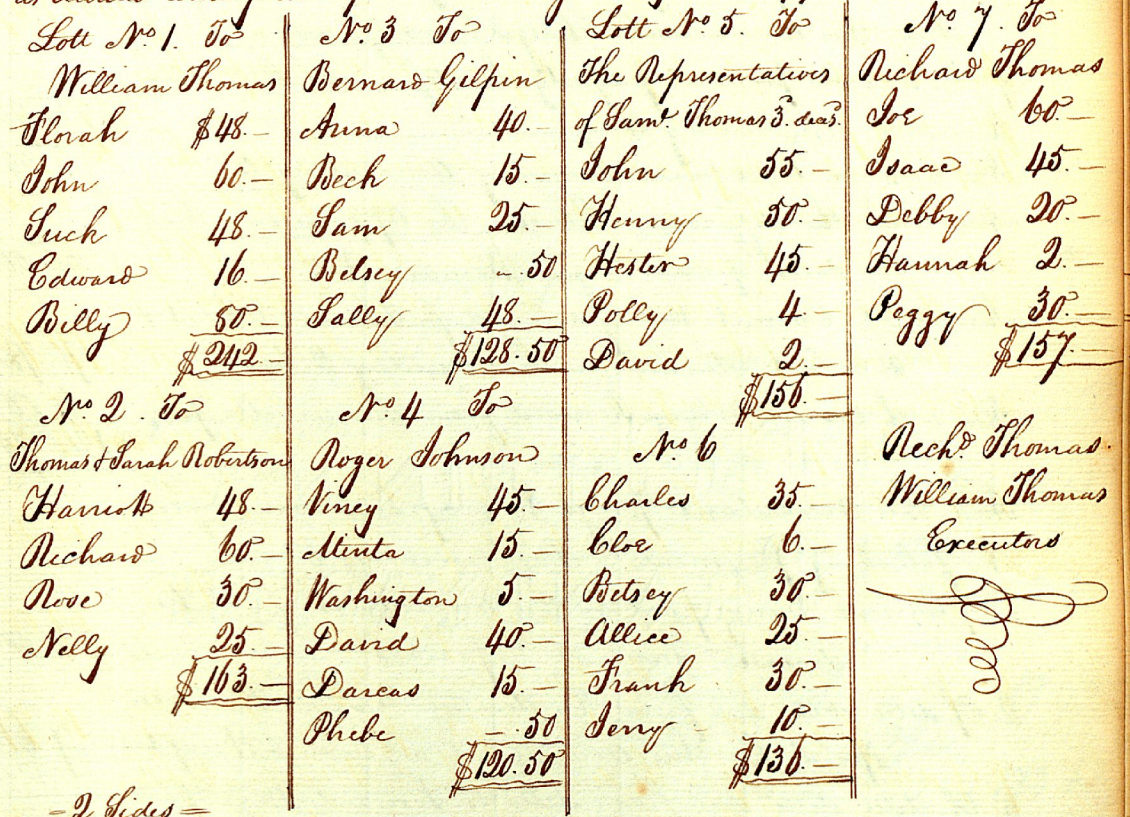 Lott No. 1. To
William Thomas
Florah $48.—
John 60.—
Such 48.—
Edward 16.—
Billy 80.—
$242.—
No. 2. To
Thomas & Sarah Robertson
Harriott 48.—
Richard 60.—
Rose 30.—
Nelly 25.—
$163.—
=2 Sides=
No. 3 To
Bernard Gilpin
Anna 40.—
Beck 15.—
Sam 25.—
Betsey —.50
Sally 48.—
$128.50
No. 4 To
Roger Johnson
Viney 45.—
Minta 15.—
Washington 5.—
David 40.—
Darcas 15.—
Phebe —.50
$120.50
Lott No. 5. To
The Representatives
of Saml. Thomas 3d. decd.
John 55.—
Henny 50.—
Hester 45.—
Polly 4.—
David 2.—
$156.—
No. 6
Charles 35.—
Cloe 6.—
Betsey 30.—
Allice 25.—
Frank 30.—
Jerry 10.—
$136.—
No. 7. To
Richard Thomas
Joe 60.—
Isaac 45.—
Debby 20.—
Hannah 2.—
Peggy 30.—
$157.—
Richd. Thomas
William Thomas
Executors